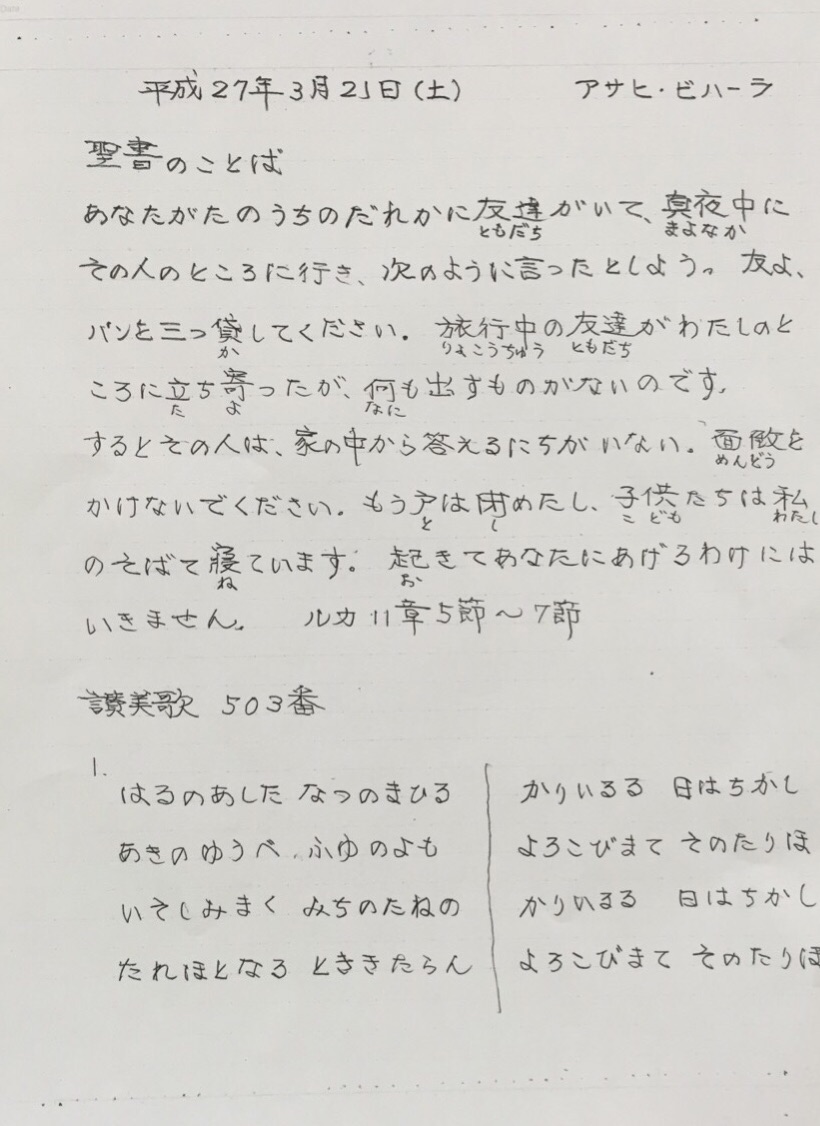 平成27年3月21日(土) アサヒ・ビハーラ
聖書のことば
あなたがたのうちのだれかに友達がいて、真夜中に
ともだち まよなか
その人のところに行き、次のように言ったとしよう。友よ、
パンを三つ貸してください。旅行中の友達がわたしのと
か りょこうちゅう ともだち
ころに立ち寄ったが、何も出すものがないのです。
た よ なに
するとその人は、家の中から答えるにちがいない。面倒を
めんどう
かけないでください。もう戸は閉めたし、子供たちは私
と し こ ども わたし
のそばで寝ています。起きてあなたにあげるわけには
ね お
いきません。 ルカ11章5節~7節
讃美歌 503番
1.
はるのあした なつのまひる
あきのゆうべ ふゆのよも
いそしみまく みちのたねの
たれほとなる ときききたらん
かりいるる 日はちかし
よろこびまて そのたりほ
かりいるる 日はちかし
よろこびまて そのたりほ